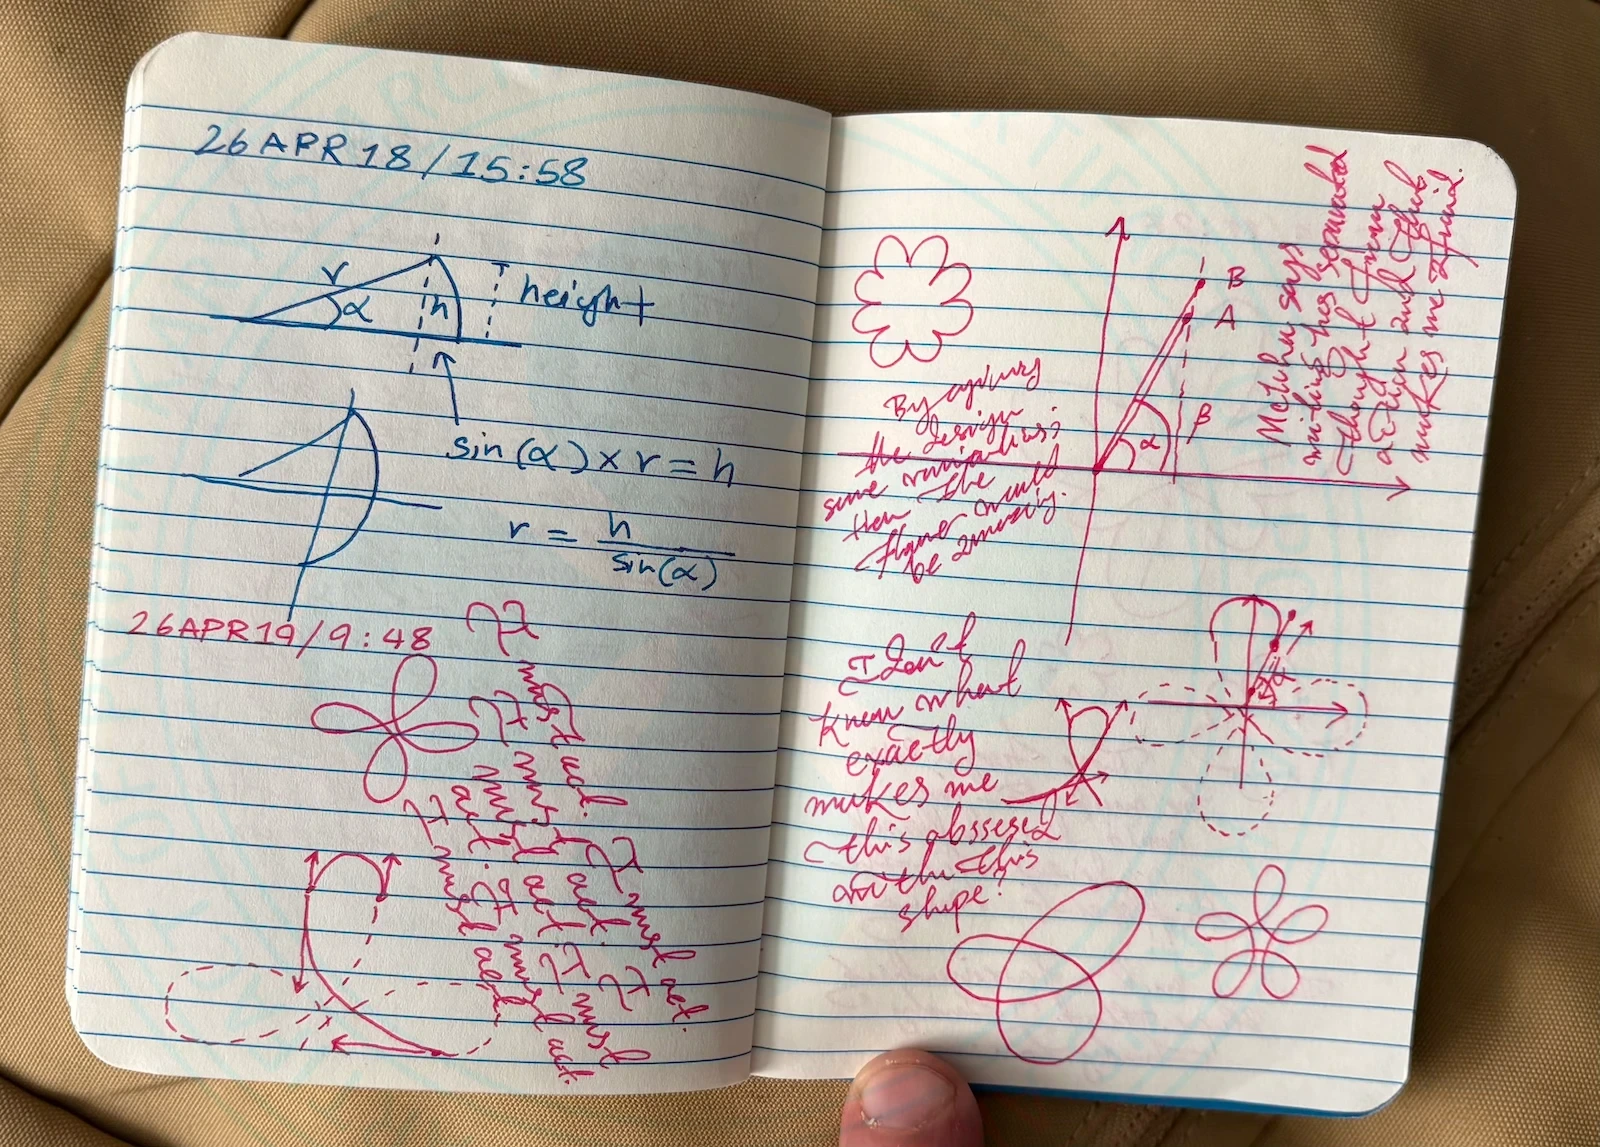 26 APR 18 / 15:58
r
α
h
height
sin(α) × r = h
r = h / sin(α)
26 APR 19 / 9:48
I must act.
I must act. I must act.
I must act. I must act.
I must act. I must act.
B
A
α
β
By
the design
some
then the
flower would
be amazing.
Metha says
writing has separated
thought from
action and that
makes me afraid.
I don't
know what
exactly
makes me
this obssesed
with this
shape?